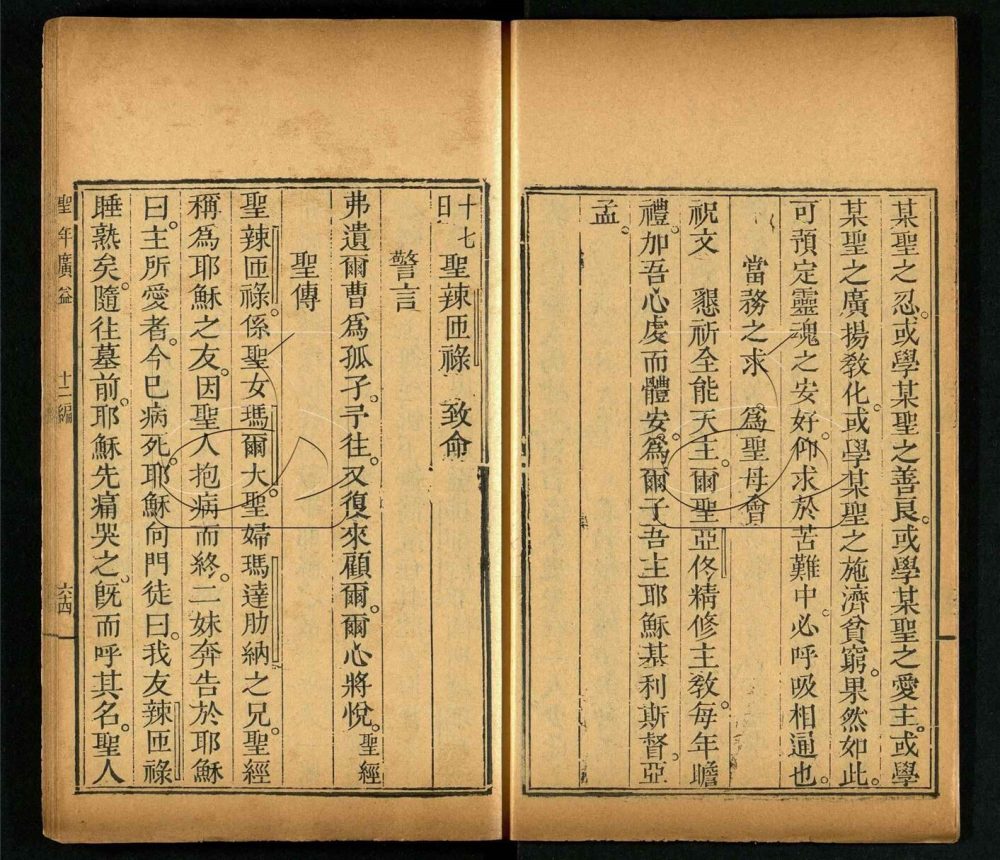 某聖之忍。或學某聖之善良。或學某聖之愛主。或學
某聖之廣揚敎化。或學某聖之施濟貧窮。果然如此。
可預定靈魂之安好。仰求於苦難中。必呼吸相通也。
當務之求　爲聖母會
祝文　懇祈全能天主。爾聖亞佟精修主敎。每年瞻
禮。加吾心虔而體安。爲爾子吾主耶穌基利斯督。亞
孟。
十七日　聖辣匝祿　致命
警言
弗遺爾曹爲孤子。予往。又復來顧爾。爾心將悅。聖經
聖傳
聖辣匝祿。係聖女瑪爾大。聖婦瑪達肋納之兄。聖經
稱爲耶穌之友。因聖人抱病而終。二妹奔告於耶穌
曰。主所愛者。今已病死。耶穌向門徒曰。我友辣匝祿
睡熟矣。隨往墓前。耶穌先痛哭之。旣而呼其名。聖人
聖年廣益　十二編　六十四